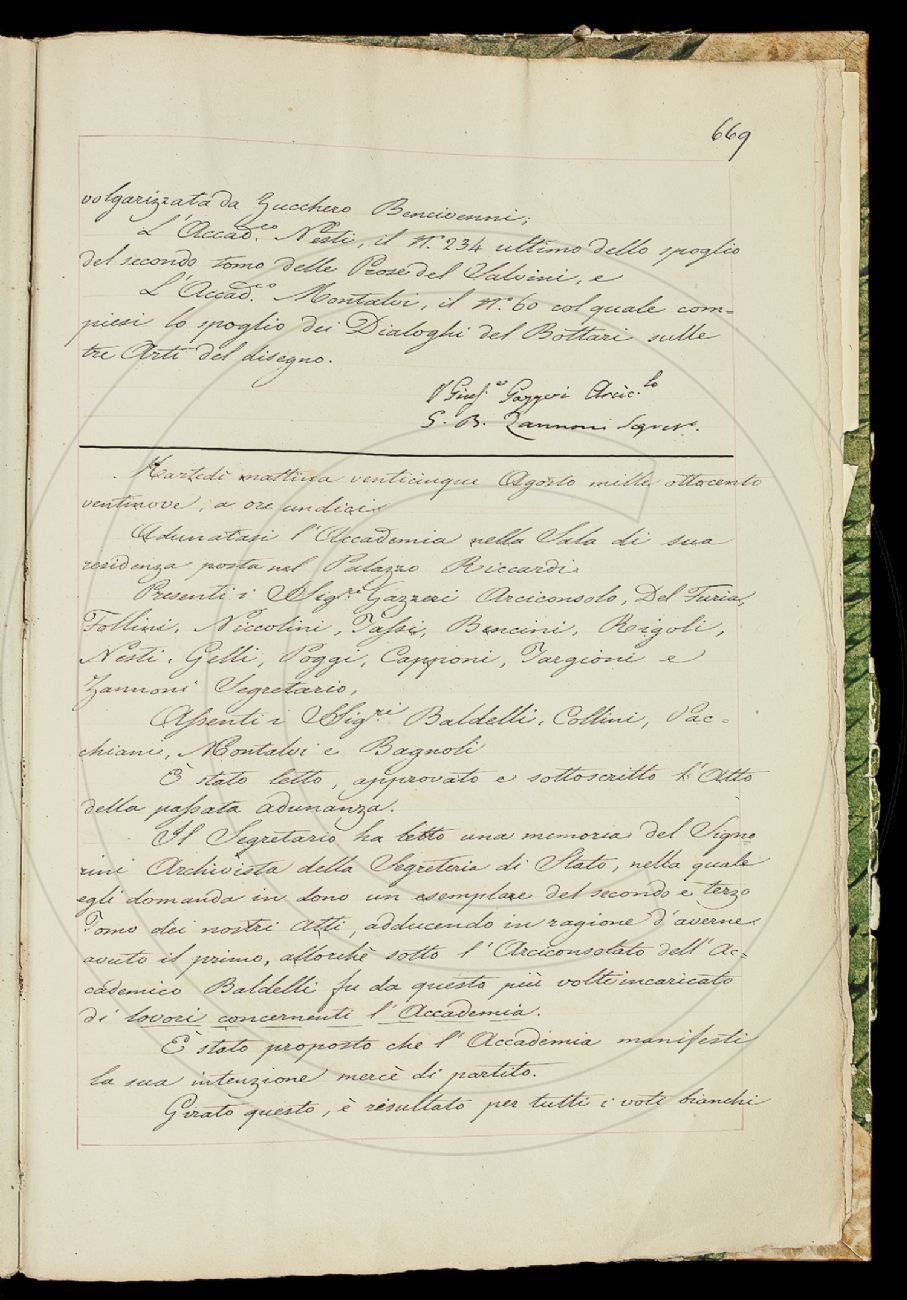 669
volgarizzata da Zucchero Bencivenni;
L'Accad.co Nesti, il N.o 234 ultimo dello spoglio
del secondo tomo delle Prose del Salvini, e
L'Accad.co Montalvi, il N.o 60 col quale com-
piesi lo spoglio dei Dialoghi del Bottari sulle
tre Arti del disegno.
Gius.e Gazzeri Arcic.lo
G. B. Zannoni Segret.
Martedì mattina venticinque Agosto mille ottocento
ventinove, a ore undici
Adunatasi l'Accademia nella Sala di sua
residenza posta nel Palazzo Riccardi
Presenti i Sig.ri Gazzeri Arciconsolo, Del Furia,
Follini, Niccolini, Tassi, Bencini, Rigoli,
Nesti, Gelli, Poggi, Capponi, Targioni e
Zannoni Segretario,
Assenti i Sig.ri Baldelli, Collini, Vac-
chiani, Montalvi e Bagnoli
È stato letto, approvato e sottoscritto l'Atto
della passata adunanza.
Il Segretario ha letto una memoria del Signo
rini Archivista della Segreteria di Stato, nella quale
egli domanda in dono un esemplare del secondo e terzo
Tomo dei nostri Atti, adducendo in ragione d'averne
avuto il primo, allorchè sotto l'Arciconsolato dell'Ac-
cademico Baldelli fu da questo più volte incaricato
di lavori concernenti l'Accademia.
È stato proposto che l'Accademia manifesti
la sua intenzione mercè di partito.
Girato questo, è resultato per tutti i voti bianchi